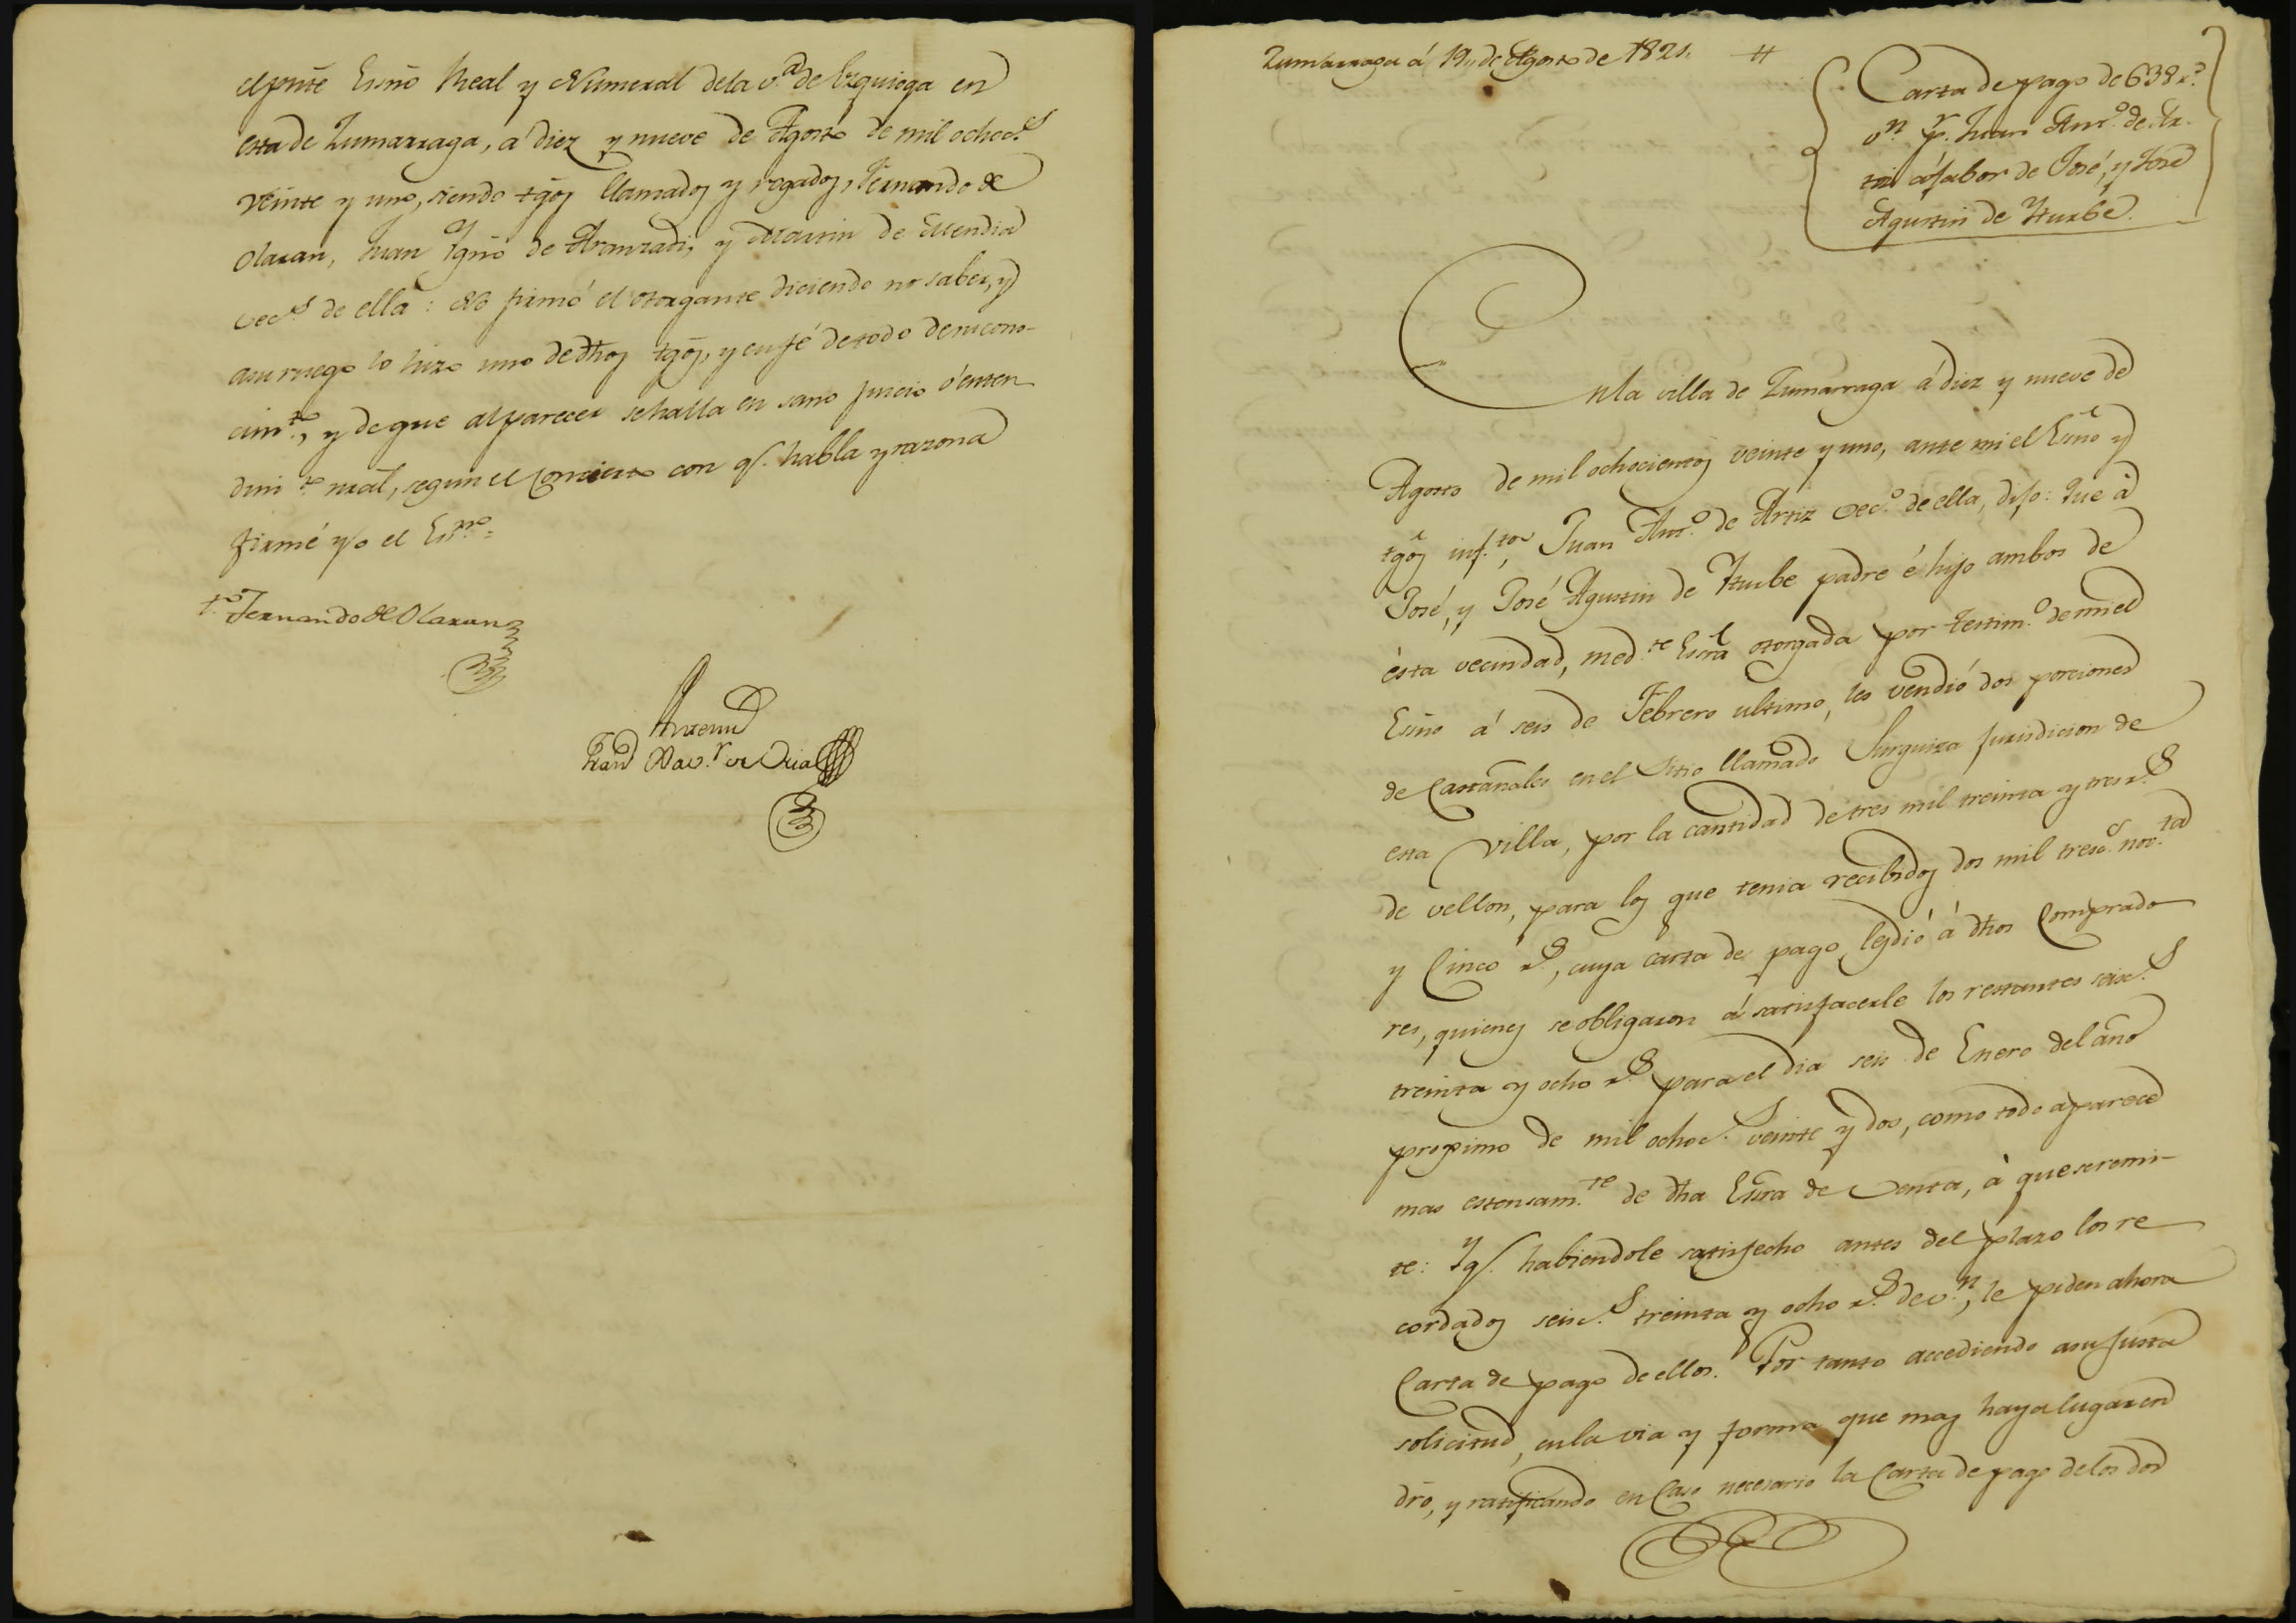 el prñte Esño Real y Numeral dela v.ª de Ezquioga en
esta de Zumarraga, á diez y nueve de Agosto de mil ochoc.s
veinte y uno, siendo tg̃os llamados y rogados, Fernando de
Olaran, Juan Ygñο de Aranzadi, y Martin de Mendia
vec.s de ella: No firmó el otorgante diciendo no saber, y
asu ruego lo hizo uno de dhos tg̃os, y en fé de todo de su cono-
cim.to, y de que al parecer se halla en sano juicio ó enten
dim.to nãal, segun el Concierto con q.e habla y razona
firmé yo el Esno=
t.o Fernando de Olaran
Antemi
Fran.co Xav.r de Oria
Zumarraga á 19,, de Agosto de 1821. #
Carta de pago de 638 r.s
v.n p.r Juan Ant.o de Ar-
tiz á fabor de José, y José
Agustin de Yturbe.
Enla villa de Zumarraga á diez y nueve de
Agosto de mil ochocientos veinte y uno, ante mi el Esño y
tg̃os inf.tos, Juan Ant.o de Artiz vec.o de ella, dijo: Que á
José, y José Agustin de Yturbe padre é hijo ambos de
ésta vecindad, med.te Esc̃ra otorgada por testim.o de mi el
Esño á seis de Febrero ultimo, les vendió dos porciones
de Castañales en el Sitio llamado Surguiza jurisdicion de
esta villa, por la cantidad de tres mil treinta y tres r.s
de vellon, para los que tenia recibidos dos mil tresc.s nov.ta
y Cinco r.s, cuya carta de pago les dió á dhos Comprado
res, quienes se obligaron á satisfacerle los restantes seisc.s
treinta y ocho r.s para el dia seis de Enero del año
proximo de mil ochoc.s veinte y dos, como todo aparece
mas estensam.te de dha Esc̃ra de venta, à que se remi-
te: Y q.e habiendole satisfecho antes del plazo los re
cordados seisc.s treinta y ocho r.s de v.n, le piden ahora
Carta de pago de ellos. Por tanto accediendo asu justa
solicitud, en la via y forma que mas haya lugar en
dr̃o, y ratificando en Caso necesario la Carta de pago de los dos